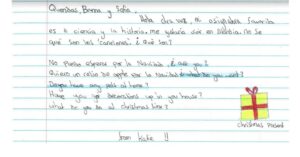 Queridas, Brenna y Sofia,
Hola otra vez, mi asignatura favorita
es la ciencia y la historia, me gustaria vivir en Irlanda. no se
qué son las "canciones" ¿ Qué son?
No puedo esperar por la Navidad ¿ que you?
Quiero un reloj de apple por la Navidad what do you want?
Do you have any pets at home?
Have you got decorations up in you house?
What do you do at Christmas time?
Christmas Present
from Kate !!